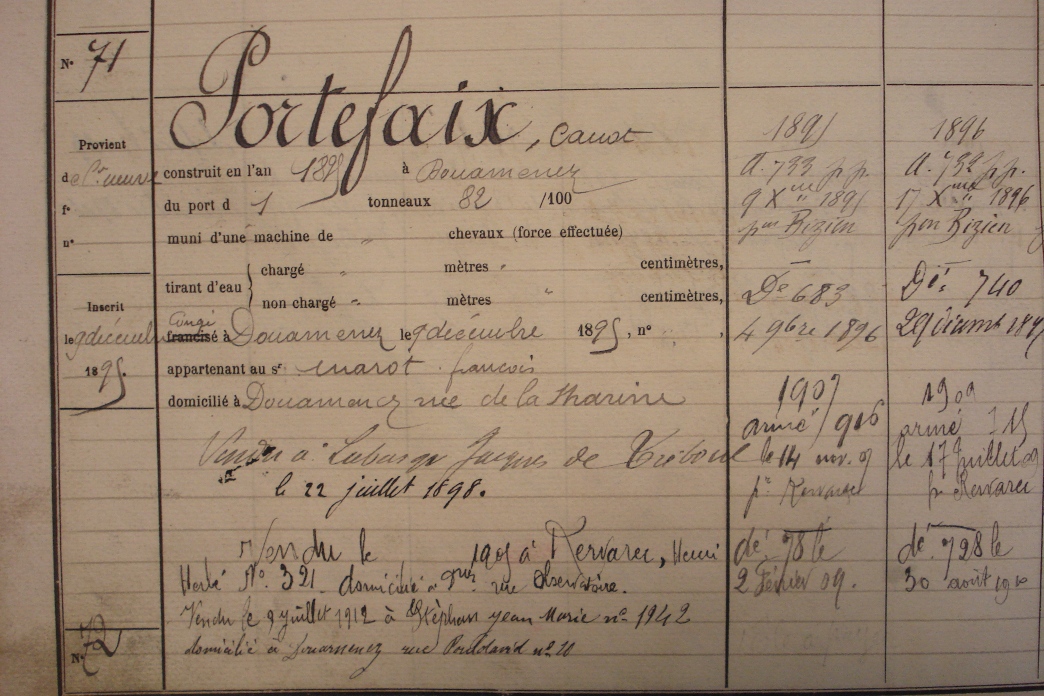 N° 71
Portefaix, Canot
Provient
de Con neuve
construit en l'an 1895 à Douarnenez
du port d 1 tonneaux 82 /100
fo
n°
muni d'une machine de " chevaux (force effectuée)
tirant d'eau
chargé " mètres " centimètres,
non chargé " mètres " centimètres,
Inscrit
le 9 décembre
1895.
Congé
francisé à Douarnenez le 9 décembre 1895, n° ,
appartenant au sr marot françois
domicilié à Douarnenez rue de la Marine
Vendu à Labasque Jacques de Tréboul
le 22 juillet 1898.
Vendu le 1905 à Kervarec, Henri
Hervé N° 321 domicilié à Dnez rue Observatoire.
Vendu le 9 juillet 1912 à Stéphan Jean Marie n° 1942
domicilié à Douarnenez rue Pouldavid n° 20
N° 72
1895
a. 733 p.p.
9 Xbre 1895
par Bizien
Dé 683
4 9bre 1896
1907
armé 916
le 14 nov. 07
pr Kervarec
dé: 78 le
2 Février 09.
1896
a. 732 p.p.
17 Xbre 1896
par Bizien
Dé: 740
1909
armé 715
le 17 Juillet 09
pr Kervarec
dé: 728 le
30 août 1910